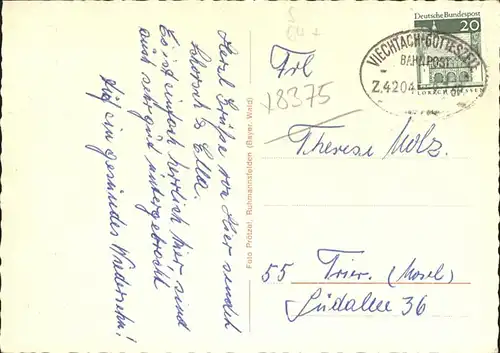 Herzl. Grüße von hier senden
Schorsch & Ella.
Es ist einfach herrlich hier, sind
auch sehr gut untergebracht.
Auf ein gesundes Wiedersehn!
Foto Prötzel, Ruhmannsfelden (Bayer. Wald)
Deutsche Bundespost
20
LORSCH/HESSEN
VIECHTACH-GOTTESZELL
BAHNPOST
Z.4204
Frl
x8375
Therese Molz.
55 Trier. (Mosel)
Südallee 36